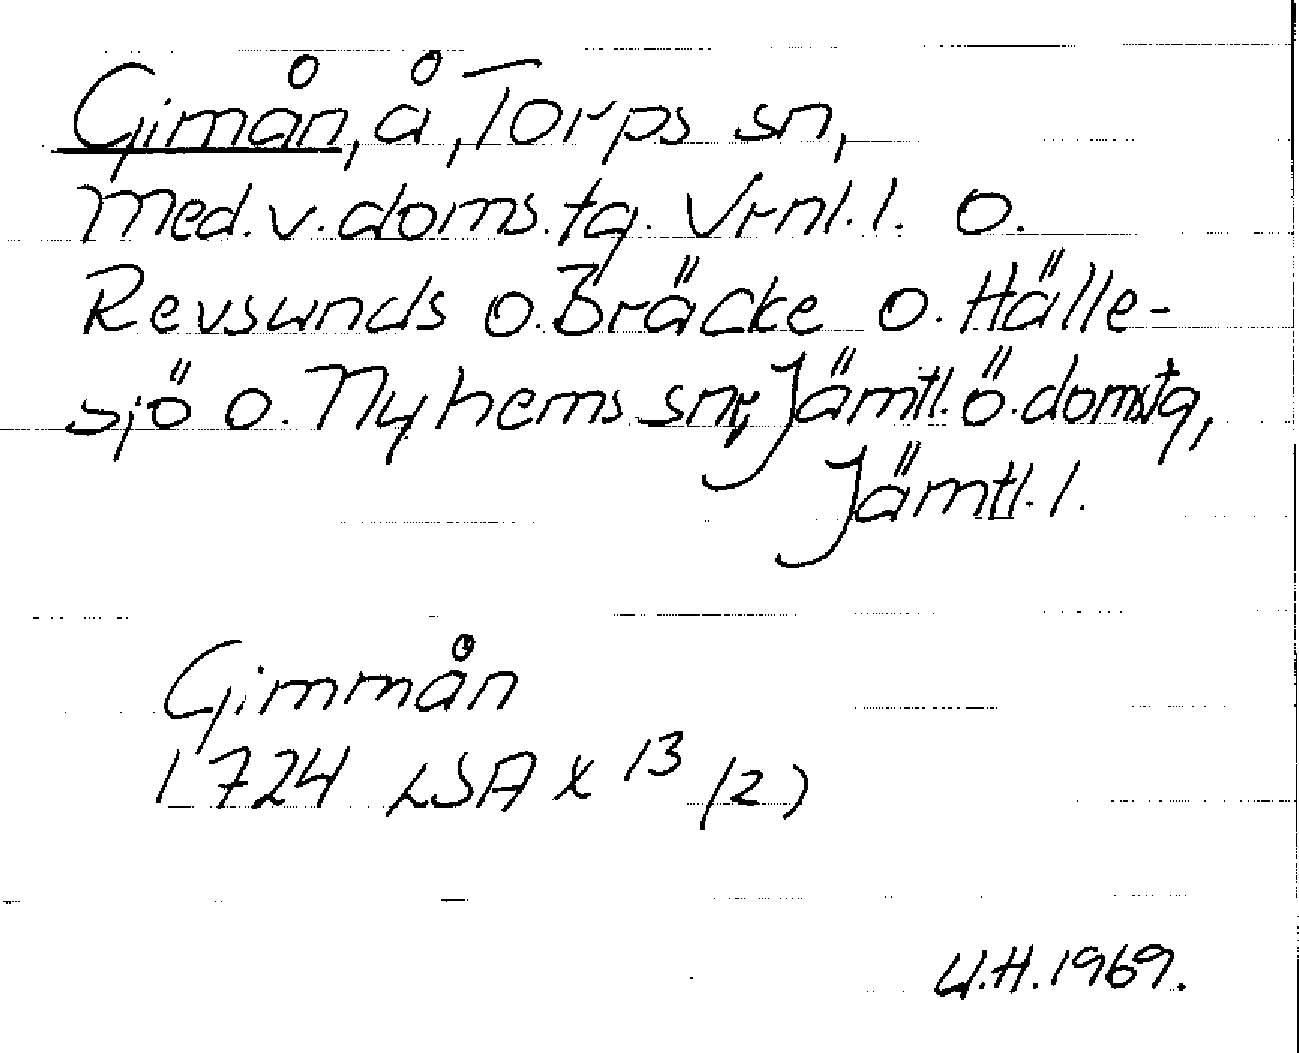 Gimån, å, Torps sn,
Med.v.doms.tg. Vrnl.l. o.
Revsunds o.Bräcke o. Hälle-
sjö o. Nyhems snr, Jämtl.ö.domstg,
Jämtl.l.
Gimmån
1724 LSA X 13 /2)
U.H.1969.